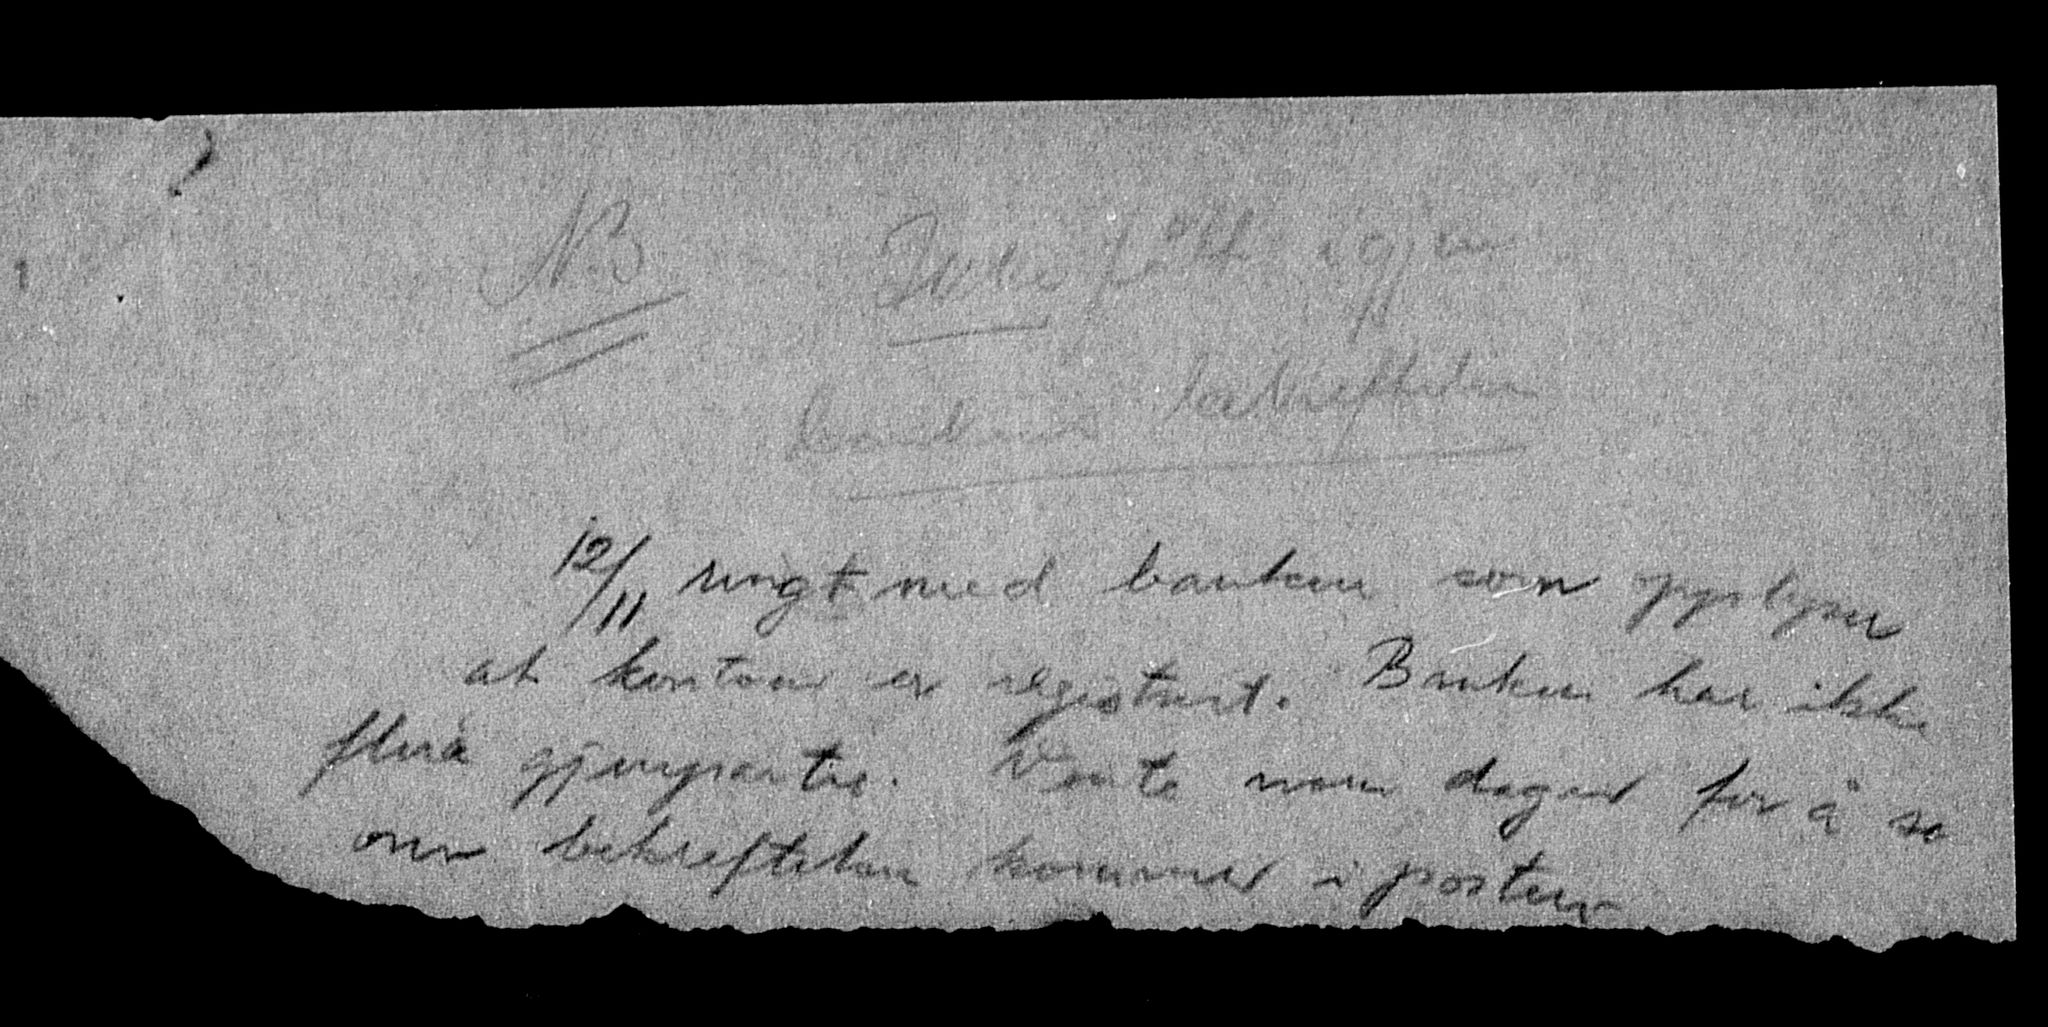 N.B. Ikke fått igjen
bankens bekreftelse
12/11 ringt med banken som opplyser
at kontoen er registrert. Banken har ikke
flere gjenparter. Vente noen dager for å se
om bekreftelsen kommer i posten